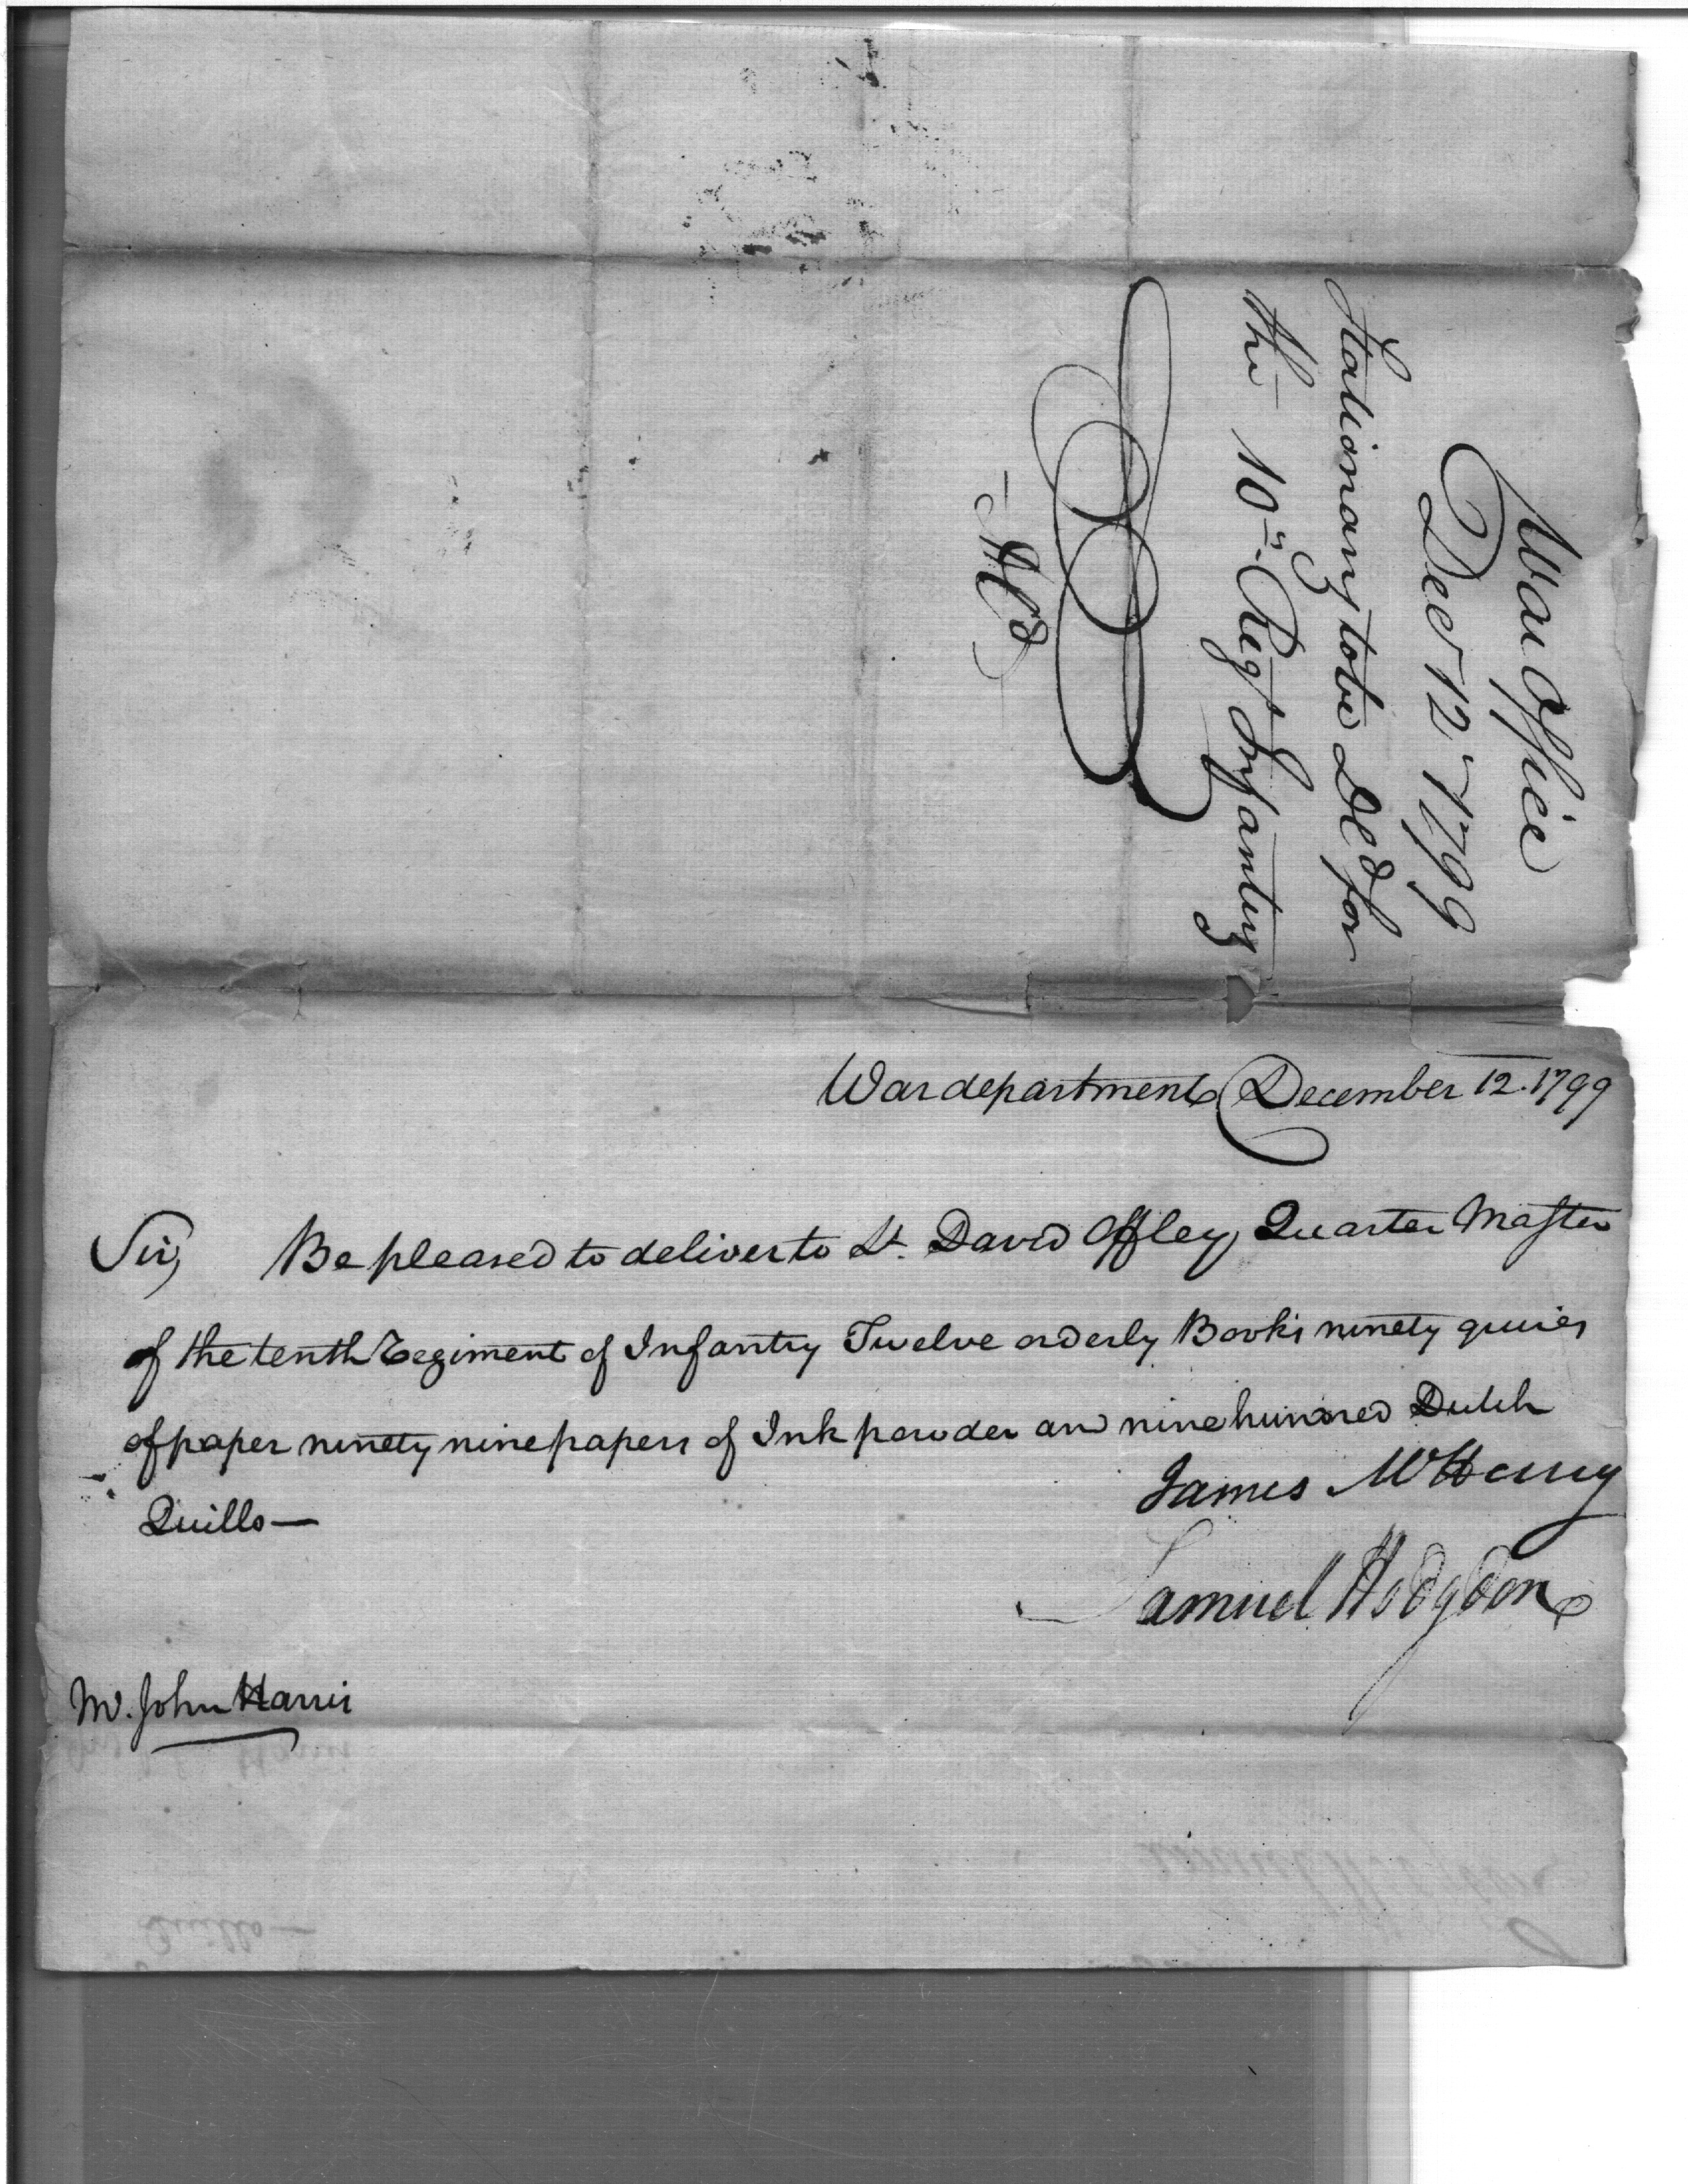 War Office
Decr 12th 1799
Stationary to be Dld for
the 10th Regt Infantry
Dld
War department December 12. 1799
Sir, Be pleased to deliver to Lt. David Offley, Quarter Master
of the tenth Regiment of Infantry Twelve orderly Books ninety quires
of paper ninety nine papers of Ink powder and nine hundred Dutch
Quills—
James McHenry
Samuel Hodgdon
Mr. John Harris